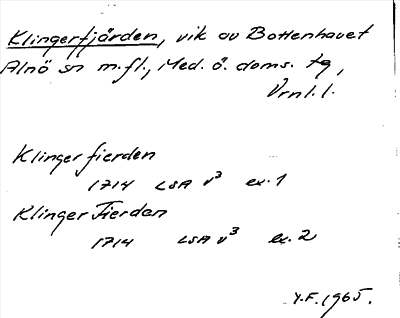 Klingerfjärden, vik av Bottenhavet
Alnö sn m.fl., Med. ö. doms. tg,
Vrnl.l.
Klinger fierden
1714 LSA v3 ex. 1
Klinger Fierden
1714 LSA v3 ex. 2
Y.F. 1965.